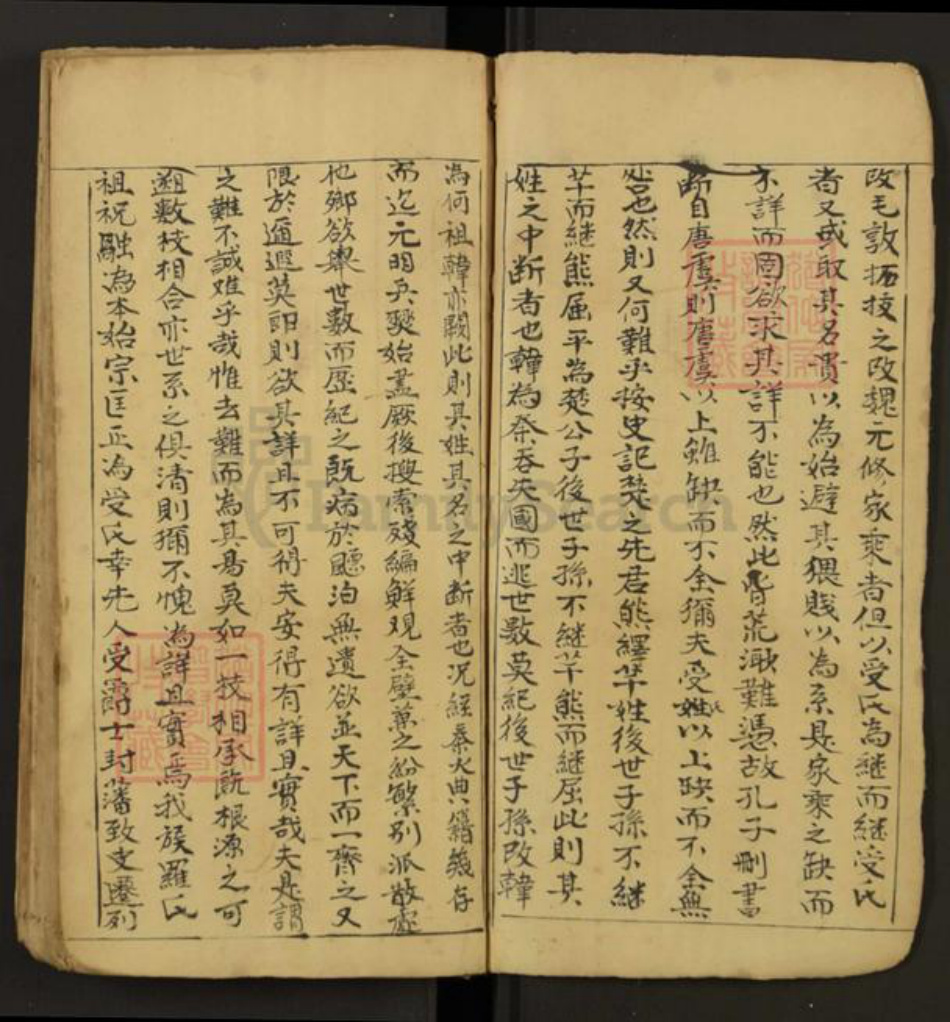 改毛敦拓拔之改魏元修家乘者但以受氏為継而継受氏
者又或取其名貫以為始避其猥賤以為系是家乘之缺而
不詳而固欲求其詳不能也然此皆荒渺難憑故孔子刪書
断自唐虞則唐虞以上雖缺而不全獮夫受姓氏以上缺而不全無
処也然則又何難乎按史記楚之先君熊繹芊姓後世子孫不継
芊而継熊屈平為楚公子後世子孫不継芊熊而継屈此則其
姓之中断者也韓為秦吞失國而逃世数莫紀後世子孫改韓
為何祖韓亦闕此則其姓其名之中断者也况経秦火典籍幾存
而迄元明兵燹始盡厥後搜索殘編鮮观全璧兼之紛繁別派散處
他鄉欲舉世數而歷紀之既病於飄泊無遺欲並天下而一齊之又
限於遍遐莫即則欲其詳且不可得夫安得有詳且實哉夫是謂
之難不誠难乎哉惟去難而為其易莫如一枝相承既根源之可
遡數枝相合亦世系之俱清則獮不愧為詳且實焉我族羅氏
祖祝融為本始宗匡正為受氏幸先人受爵士封藩致史遷列
FamilySearch